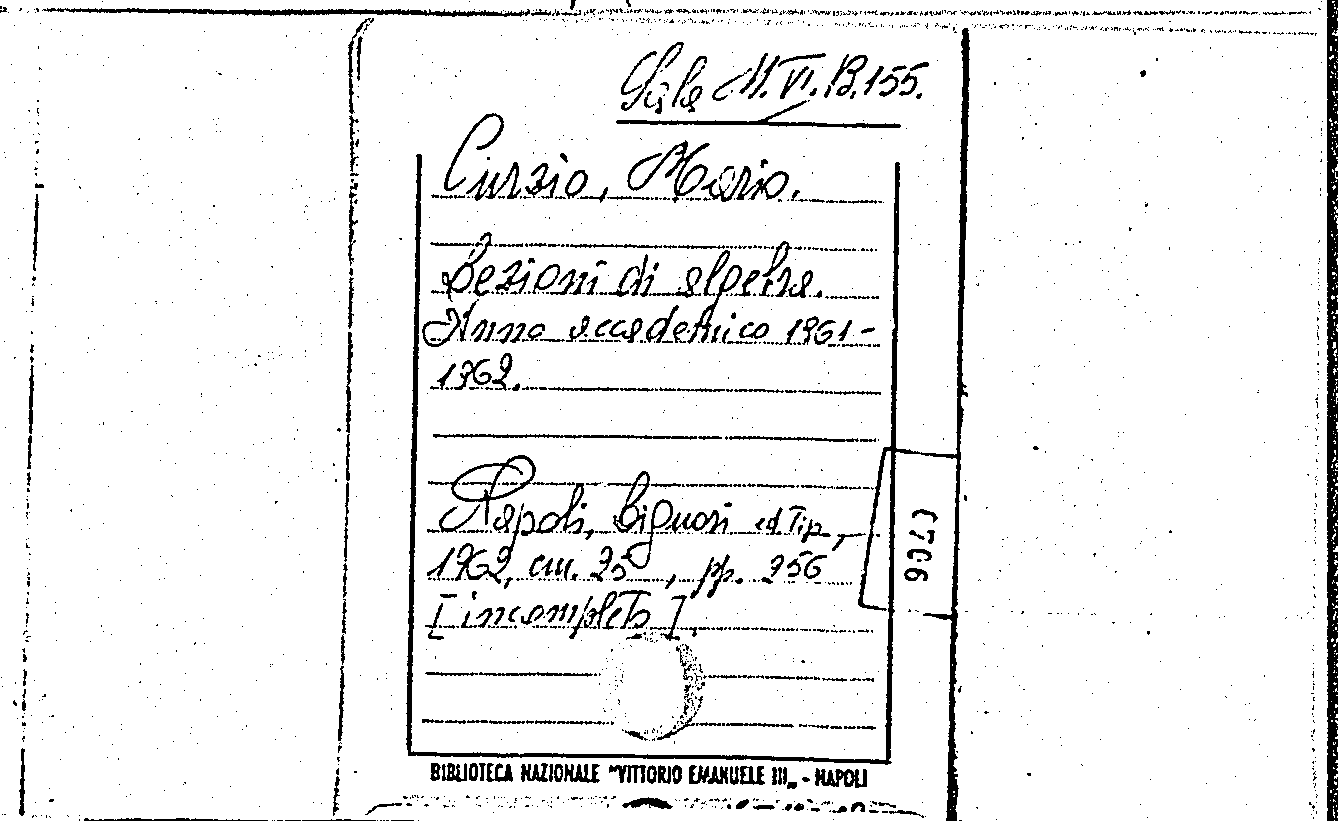 Sala M. VI. B. 155.
Curzio, Mario.
Lezioni di algebra.
Anno accademico 1961-
1962.
Napoli, Liguori ed. Tip.,
1962, cm. 25 , pp. 256
[incompleto].
C706
BIBLIOTECA NAZIONALE "VITTORIO EMANUELE III„ - NAPOLI